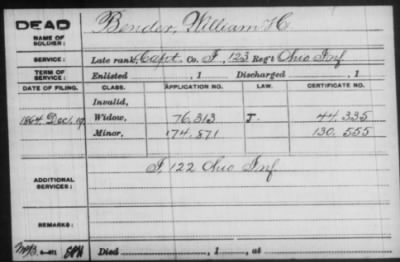 DEAD
NAME OF SOLDIER: Bender, William H
SERVICE: Late rank, Capt. Co. F, 123 Reg't Ohio Inf
TERM OF SERVICE: Enlisted , 1 Discharged , 1
DATE OF FILING. CLASS. APPLICATION NO. LAW. CERTIFICATE NO.
Invalid,
1864 Dec. 19. Widow, 76.313 J. 44.335
Minor, 174.871 130.555
ADDITIONAL SERVICES: F, 122 Ohio Inf.
REMARKS:
Died , 1 , at